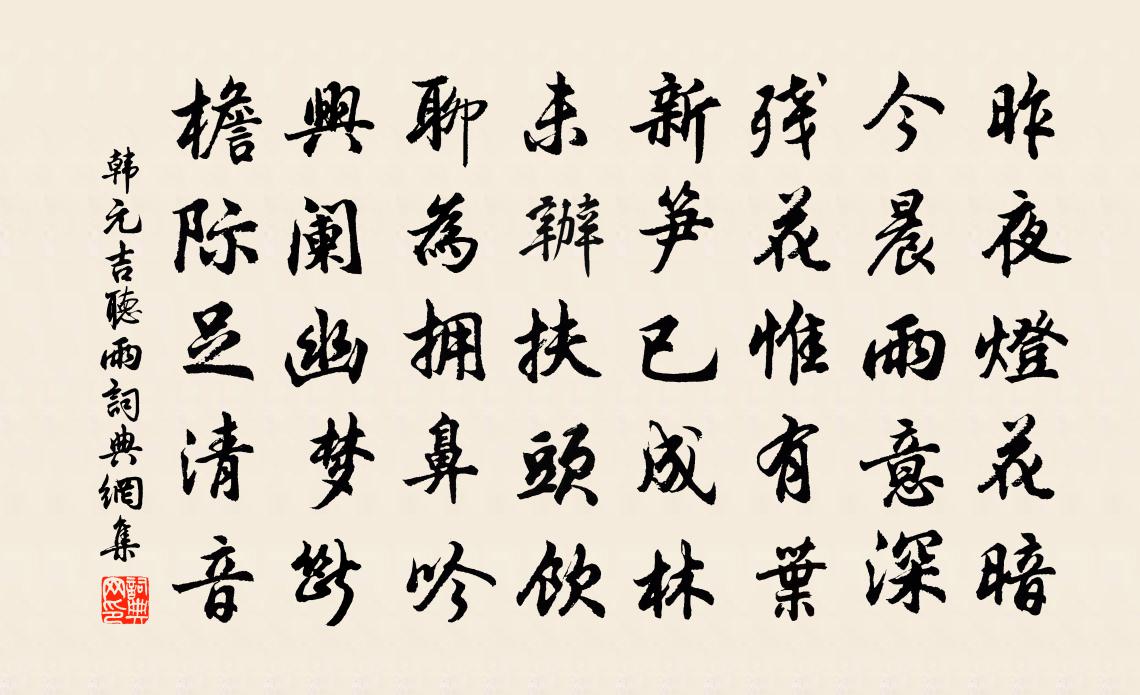 昨夜燈花暗
今晨雨意深
残花惟有葉
新笋已成林
未辦扶頭飲
聊為拥鼻吟
興阑幽梦断
檐际足清音
韩元吉聴雨詞典網集
詞典网印